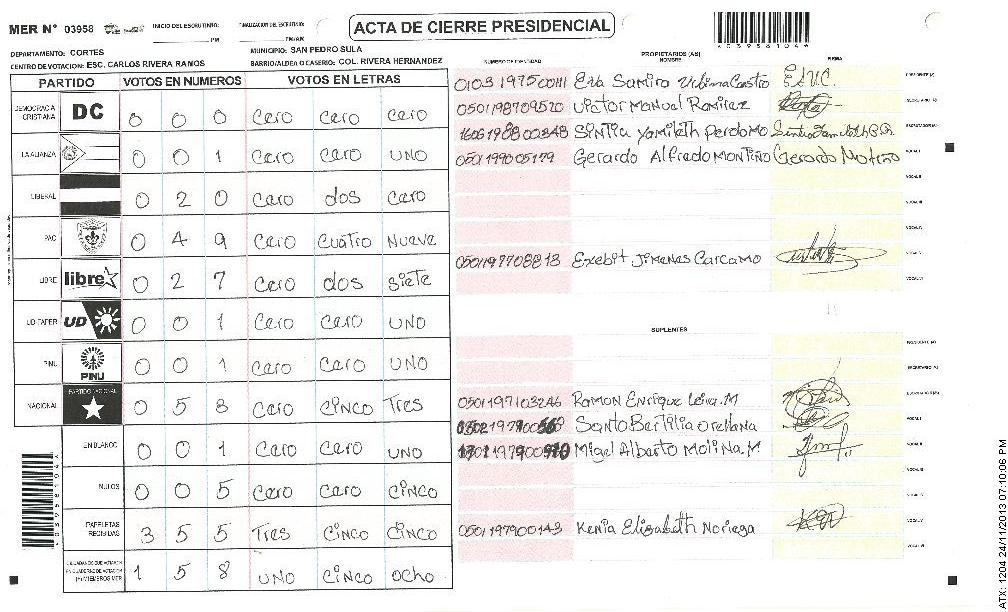 MER N° 03958
INICIO DEL ESCRUTINIO:
FINALIZACION DEL ESCRUTINIO:
PM
PM/AM
ACTA DE CIERRE PRESIDENCIAL
DEPARTAMENTO: CORTES
MUNICIPIO: SAN PEDRO SULA
CENTRO DE VOTACION: ESC. CARLOS RIVERA RAMOS
BARRIO/ALDEA O CASERIO: COL. RIVERA HERNANDEZ
PARTIDO VOTOS EN NUMEROS VOTOS EN LETRAS
DEMOCRACIA CRISTIANA DC 0 0 0 cero cero cero
LA ALIANZA 0 0 1 cero cero UNO
LIBERAL 0 2 0 cero dos cero
PAC 0 4 9 cero cuatro Nueve
LIBRE libre 0 2 7 cero dos siete
UD-FAPER UD 0 0 1 cero cero UNO
PINU PINU 0 0 1 cero cero UNO
NACIONAL PARTIDO NACIONAL 0 5 3 cero CINCO Tres
EN BLANCO 0 0 1 cero cero UNO
NULOS 0 0 5 cero cero CINCO
PAPELETAS RECIBIDAS 3 5 5 Tres CINCO CINCO
1 5 8 UNO CINCO ocho
NUMERO DE IDENTIDAD
PROPIETARIOS (AS)
NOMBRE
FIRMA
Victor Manuel Ramirez
Sintia Yamileth Perdomo
0501199005179 Gerardo Alfredo MONTIÑO
0501197708813 Exebit Jimenas Carcamo
SUPLENTES
0501197103246 Ramon Enrique Leiva.M
Santo Bertilia orellana
Migel Alberto Molina.M
0501197900143 Kenia Elizabeth Noriega
ATX: 1204 24/11/2013 07:10:06 PM